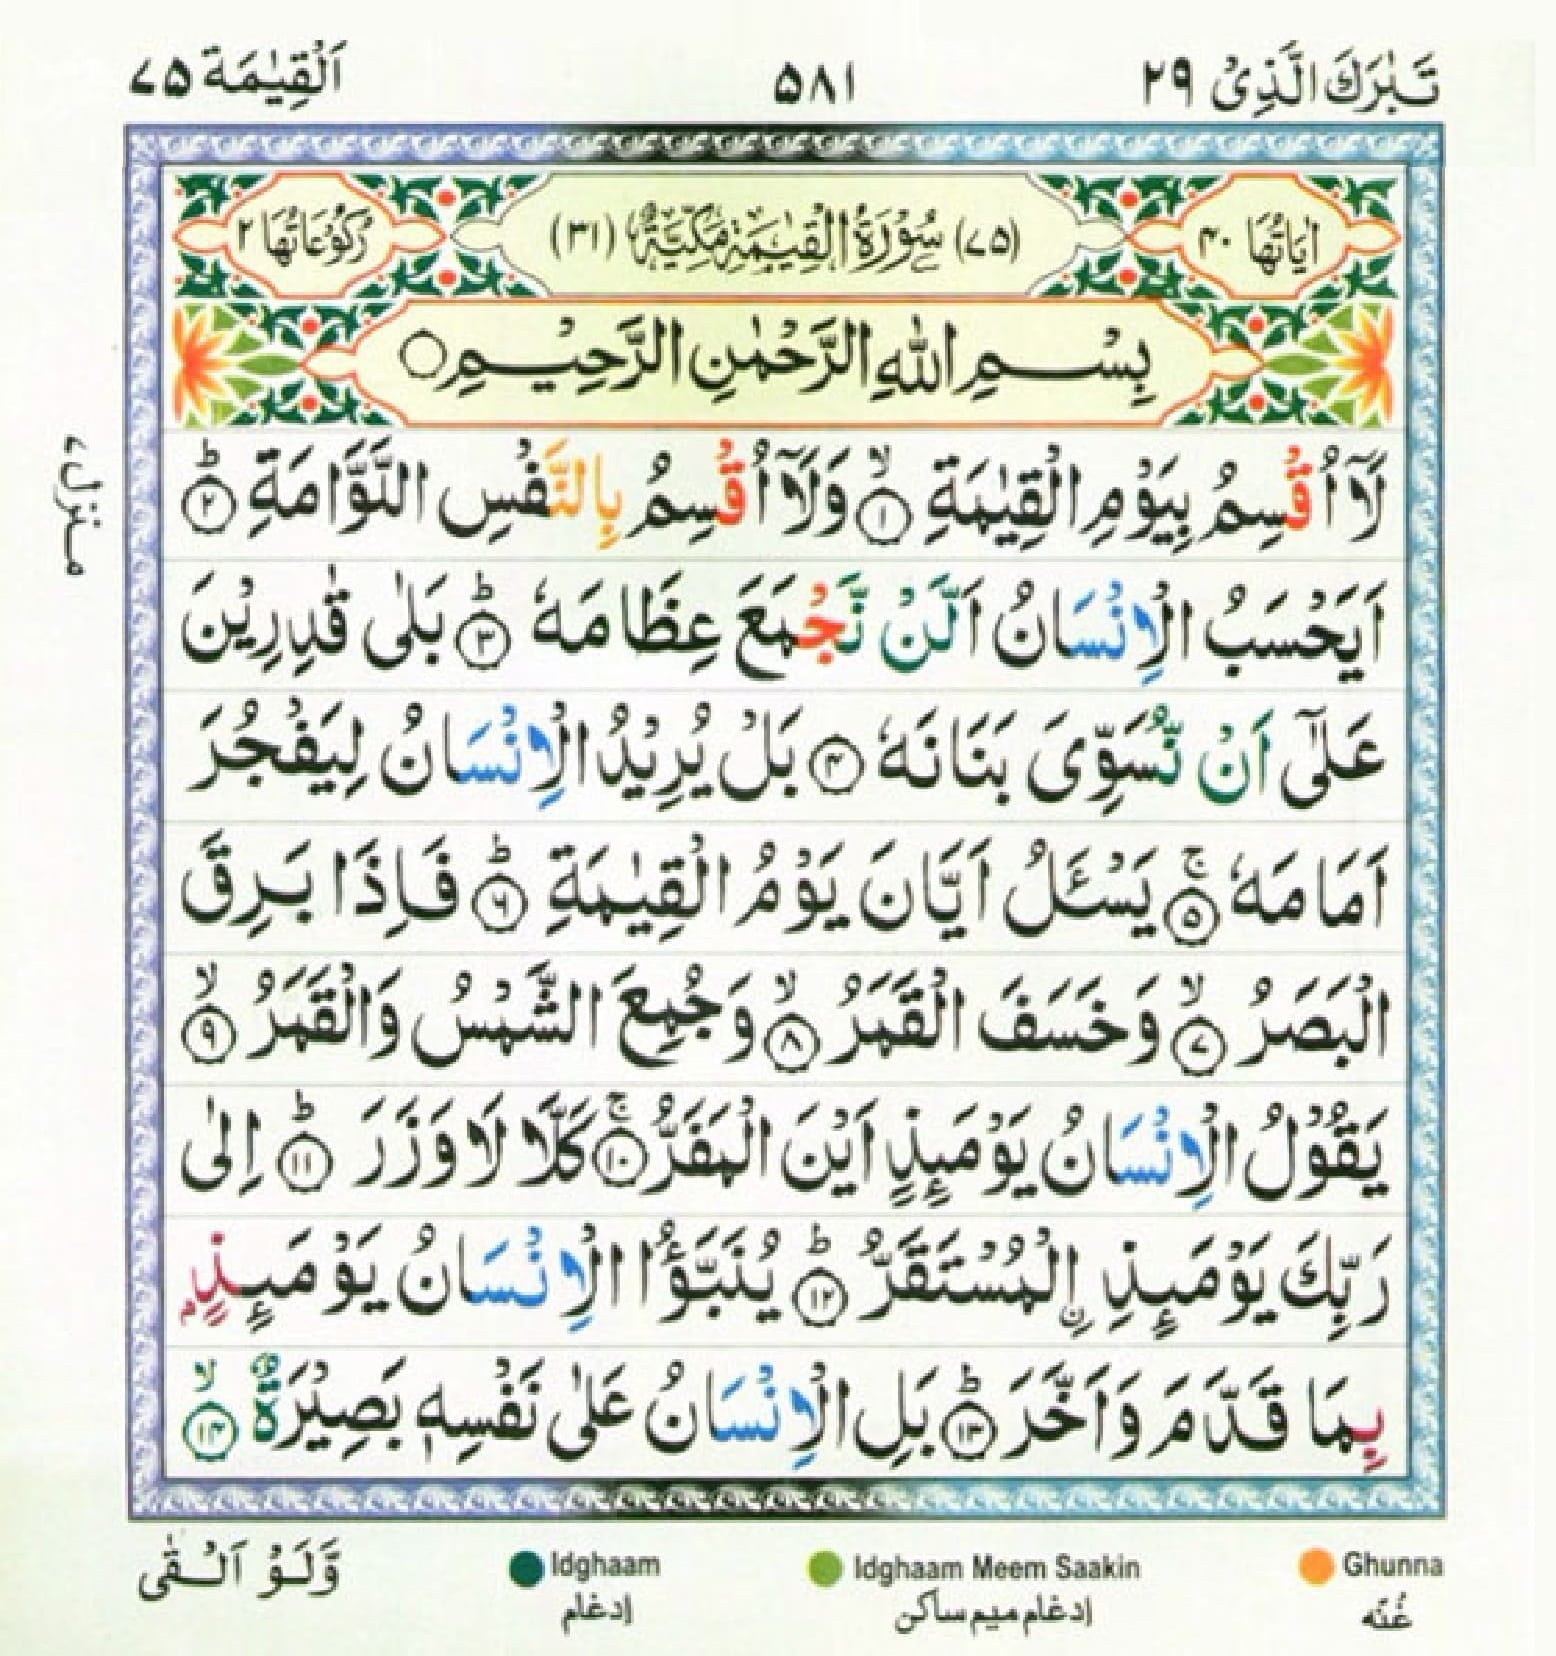 تَبٰرَكَ الَّذِىْ ٢٩
۵۸۱
اَلْقِيٰمَة ۷۵
اٰيَاتُهَا ۴۰
(۷۵) سُوْرَةُ الْقِيٰمَةِ مَكِّيَّةٌ (۳۱)
رُكُوْعَاتُهَا ۲
بِسْمِ اللّٰهِ الرَّحْمٰنِ الرَّحِيْمِ ○
لَآ اُقْسِمُ بِيَوْمِ الْقِيٰمَةِ ۙ‏﴿۱﴾ وَلَآ اُقْسِمُ بِالنَّفْسِ اللَّوَّامَةِ ؕ‏﴿۲﴾
اَيَحْسَبُ الْاِنْسَانُ اَلَّنْ نَّجْمَعَ عِظَامَهٗ ؕ‏﴿۳﴾ بَلٰى قٰدِرِيْنَ
عَلٰٓى اَنْ نُّسَوِّىَ بَنَانَهٗ ‏﴿۴﴾ بَلْ يُرِيْدُ الْاِنْسَانُ لِيَفْجُرَ
اَمَامَهٗ ۚ‏﴿۵﴾ يَسْـَٔلُ اَيَّانَ يَوْمُ الْقِيٰمَةِ ؕ‏﴿۶﴾ فَاِذَا بَرِقَ
الْبَصَرُ ۙ‏﴿۷﴾ وَخَسَفَ الْقَمَرُ ۙ‏﴿۸﴾ وَجُمِعَ الشَّمْسُ وَالْقَمَرُ ۙ‏﴿۹﴾
يَقُوْلُ الْاِنْسَانُ يَوْمَئِذٍ اَيْنَ الْمَفَرُّ ۚ‏﴿۱۰﴾ كَلَّا لَا وَزَرَ ؕ‏﴿۱۱﴾ اِلٰى
رَبِّكَ يَوْمَئِذِ ۨالْمُسْتَقَرُّ ؕ‏﴿۱۲﴾ يُنَبَّؤُا الْاِنْسَانُ يَوْمَئِذٍۢ
بِمَا قَدَّمَ وَاَخَّرَ ؕ‏﴿۱۳﴾ بَلِ الْاِنْسَانُ عَلٰى نَفْسِهٖ بَصِيْرَةٌ ۙ‏﴿۱۴﴾
منزل ۷
Ghunna
غُنّه
Idghaam Meem Saakin
إدغام ميم ساكن
Idghaam
إدغام
وَّلَوْ اَلْقٰى